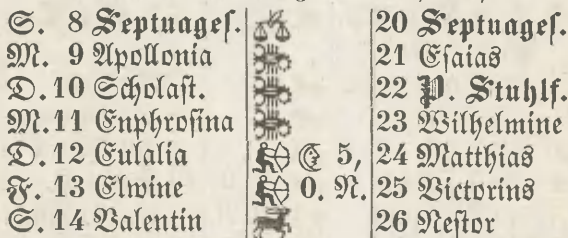 S. 8 Septuageſ. 20 Septuageſ.
M. 9 Apollonia 21 Eſaias
D. 10 Scholaſt. 22 P. Stuhlf.
M. 11 Enphroſina 23 Wilhelmine
D. 12 Eulalia 5, 24 Matthias
F. 13 Elwine 0. N. 25 Victorins
S. 14 Valentin 26 Neſtor